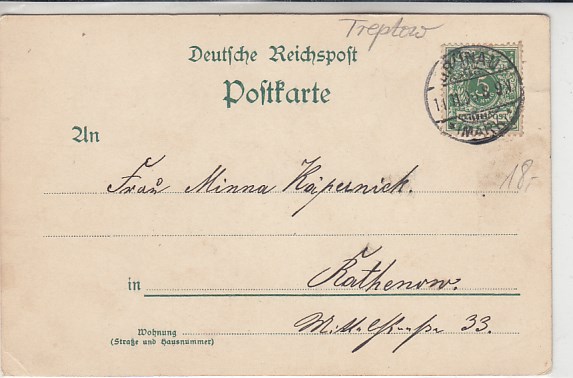 Treptow
Deutsche Reichspost
Postkarte
An
Frau Minna Käpernick.
18,-
in Rathenow.
Wohnung
(Straße und Hausnummer)
Mittelstraße 33.
GRÜNAU
(MARK)
5